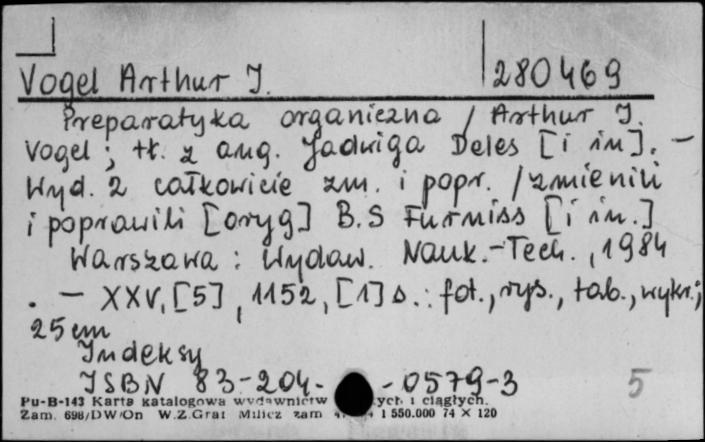 Vogel Arthur I. 280469
Preparatyka organiczna / Arthur I.
Vogel ; tł. z ang. Jadwiga Deles [i in]. –
Wyd. 2 całkowicie zm. i popr. / zmienili
i poprawili [oryg] B.S Furniss [i in.]
Warszawa : Wydaw. Nauk.-Tech., 1984
. – XXV, [5], 1152, [1] s. : fot., rys., tab., wykr.;
25 cm
Indeksy
ISBN 83-204- -0579-3 5
Pu-B-143 Karta katalogowa wydawnictw i ciągłych.
Zam. 698/DW/On W.Z.Graf Milicz zam 1 550.000 74 X 120